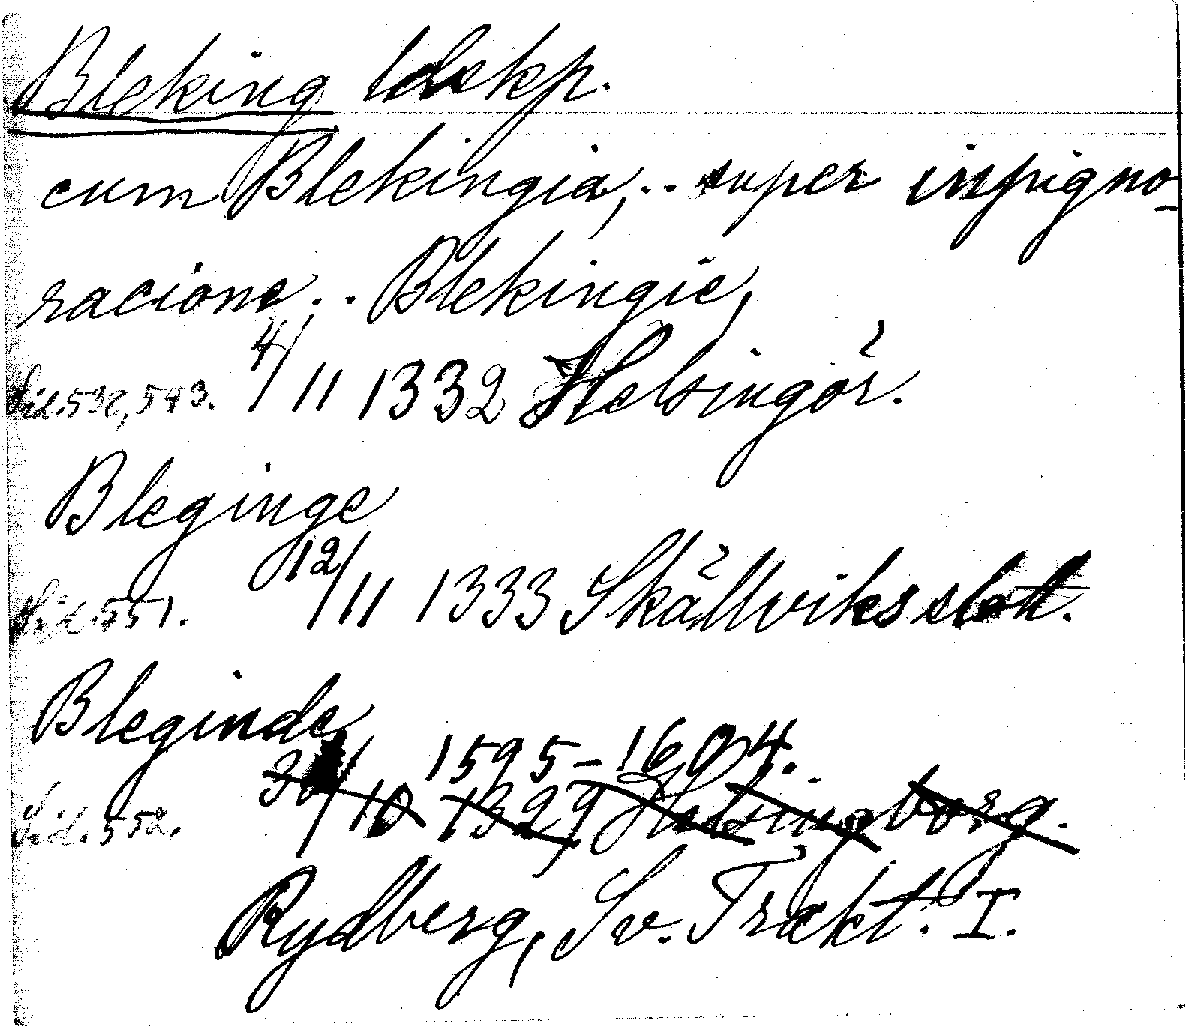 Bleking ldskp.
cum Blekingia, .. super inpigno-
racione .. Blekingie,
Sid. 532, 543. 4/11 1332 Helsingör.
Bleginge
Sid. 551. 12/11 1333 Skällviks slott.
Bleginde
1595-1604.
Sid. 552. 30/10 1329 Helsingborg.
Rydberg, Sv. Trakt. I.